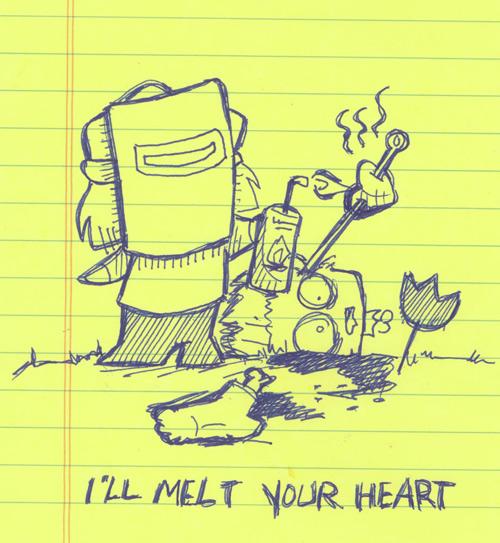 I'LL MELT YOUR HEART